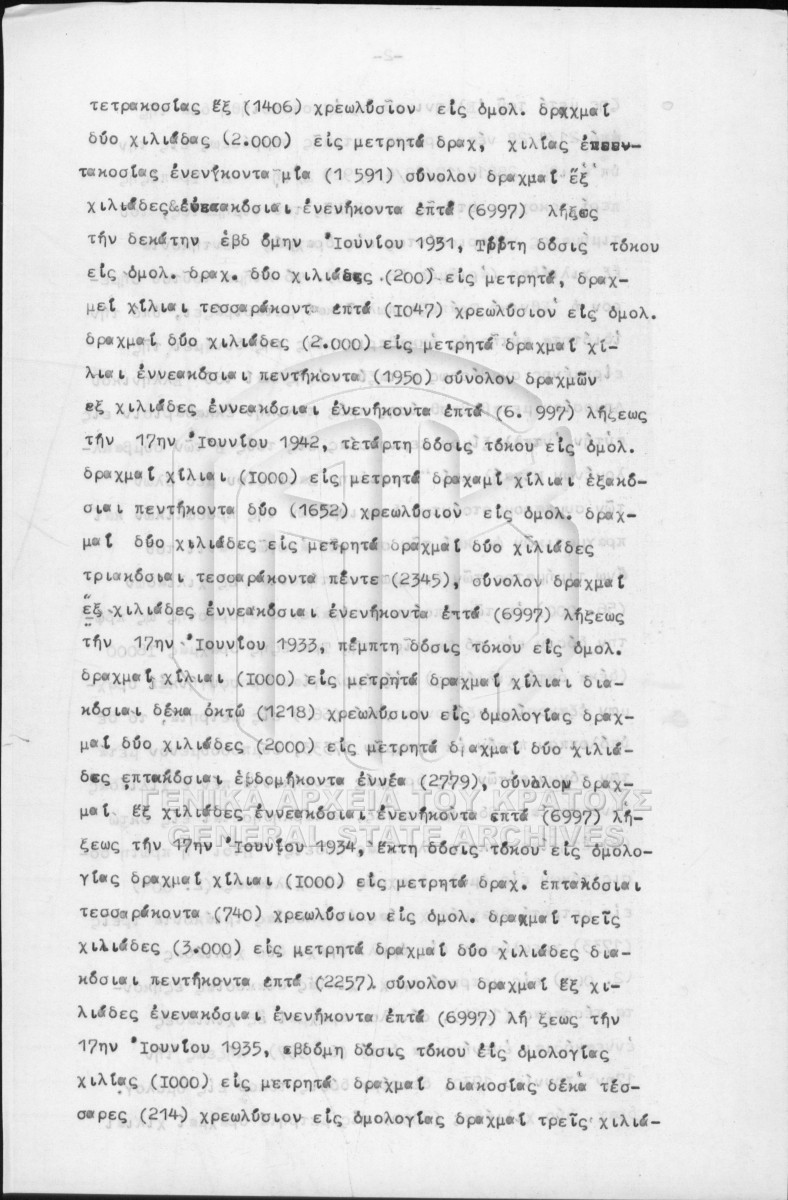 -2-
τετρακοσίας ἕξ (1406) χρεωλύσιον εἰς ὁμολ. δρχχμαί
δύο χιλιάδας (2.000) εἰς μετρητά δραχ, χιλίας
τακοσίας ἐνενήκοντα μία (1 591) σύνολον δραχμαί ἕξ
χιλιάδες&ἐννεακόσιαι ἐνενήκοντα ἑπτά (6997) λήξεως
τήν δεκάτην ἑβδ όμην Ἰουνίου 1931, Τρίτη δόσις τόκου
εἰς ὁμολ. δραχ. δύο χιλιάδες (200) εἰς μετρητά, δραχ-
μεί χίλιαι τεσσαράκοντ επτά (1047) χρεωλύσιον εἰς ὁμολ.
δραχμαί δύο χιλιάδες (2.000) εἰς μετρητά δραχμαί χί-
λιαι ἐννεακόσιαι πεντήκοντα (1950) σύνολον δραχμῶν
εξ χιλιάδες ἐννεακόσιαι ἐνενήκοντα ἑπτά (6. 997) λήξεως
τήν 17ην Ἰουνίου 1942, τετάρτη δόσις τόκου εἰς ὁμολ.
δραχμαί χίλιαι (1000) εἰς μετρητά δραχαμί χίλιαι ἑξακό-
σιαι πεντήκοντα δύο (1652) χρεωλύσιον εἰς ὁμολ. δραχ-
μαί δύο χιλιάδες εἰς μετρητά δραχμαί δύο χιλιάδες
τριακόσιαι τεσσαράκοντα πέντε (2345), σύνολον δραχμαί
ἕξ χιλιάδες ἐννεακόσιαι ἐνενήκοντα ἑπτά (6997) λήξεως
τήν 17ην Ἰουνίου 1933, πέμπτη δόσις τόκου εἰς ὁμολ.
δραχμαί χίλιαι (1000) εἰς μετρητά δραχμαί χίλιαι δια-
κόσιαι δέκα ὀκτώ (1218) χρεωλύσιον εἰς ὁμολογίας δραχ-
μαί δύο χιλιάδες (2000) εἰς μετρητά δραχμαί δύο χιλιά-
δες επτακόσιαι ἑβδομήκοντα ἐννέα (2779), σύνολον δραχ-
μαί ἕξ χιλιάδες ἐννεακόσιαι ἐνενήκοντα επτά (6997) λή-
ΓΕΝΙΚΑ ΑΡΧΕΙΑ ΤΟΥ ΚΡΑΤΟΥΣ
GENERAL STATE ARCHIVES
ξεως τήν 17ην Ἰουνίου 1934, ἕκτη δόσις τόκου εἰς ὁμολο-
γίας δραχμαί χίλιαι (1000) εἰς μετρητά δραχ. ἑπτακόσιαι
τεσσαράκοντα (740) χρεωλύσιον εἰς ὁμολ. δραχμαί τρεῖς
χιλιάδες (3.000) εἰς μετρητά δραχμαί δύο χιλιάδες δια-
κόσιαι πεντήκοντα επτά (2257). σύνολον δραχμαί ἕξ χι-
λιάδες ἐνενακόσιαι ἐνενήκοντα ἑπτά (6997) λή ξεως τήν
17ην Ἰουνίου 1935, εβδόμη δόσις τόκου εἰς ὁμολογίας
χιλίας (1000) εἰς μετρητά δραχμαί διακοσίας δέκα τέσ-
σαρες (214) χρεωλύσιον εἰς ὁμολογίας δραχμαί τρεῖς χιλιά-